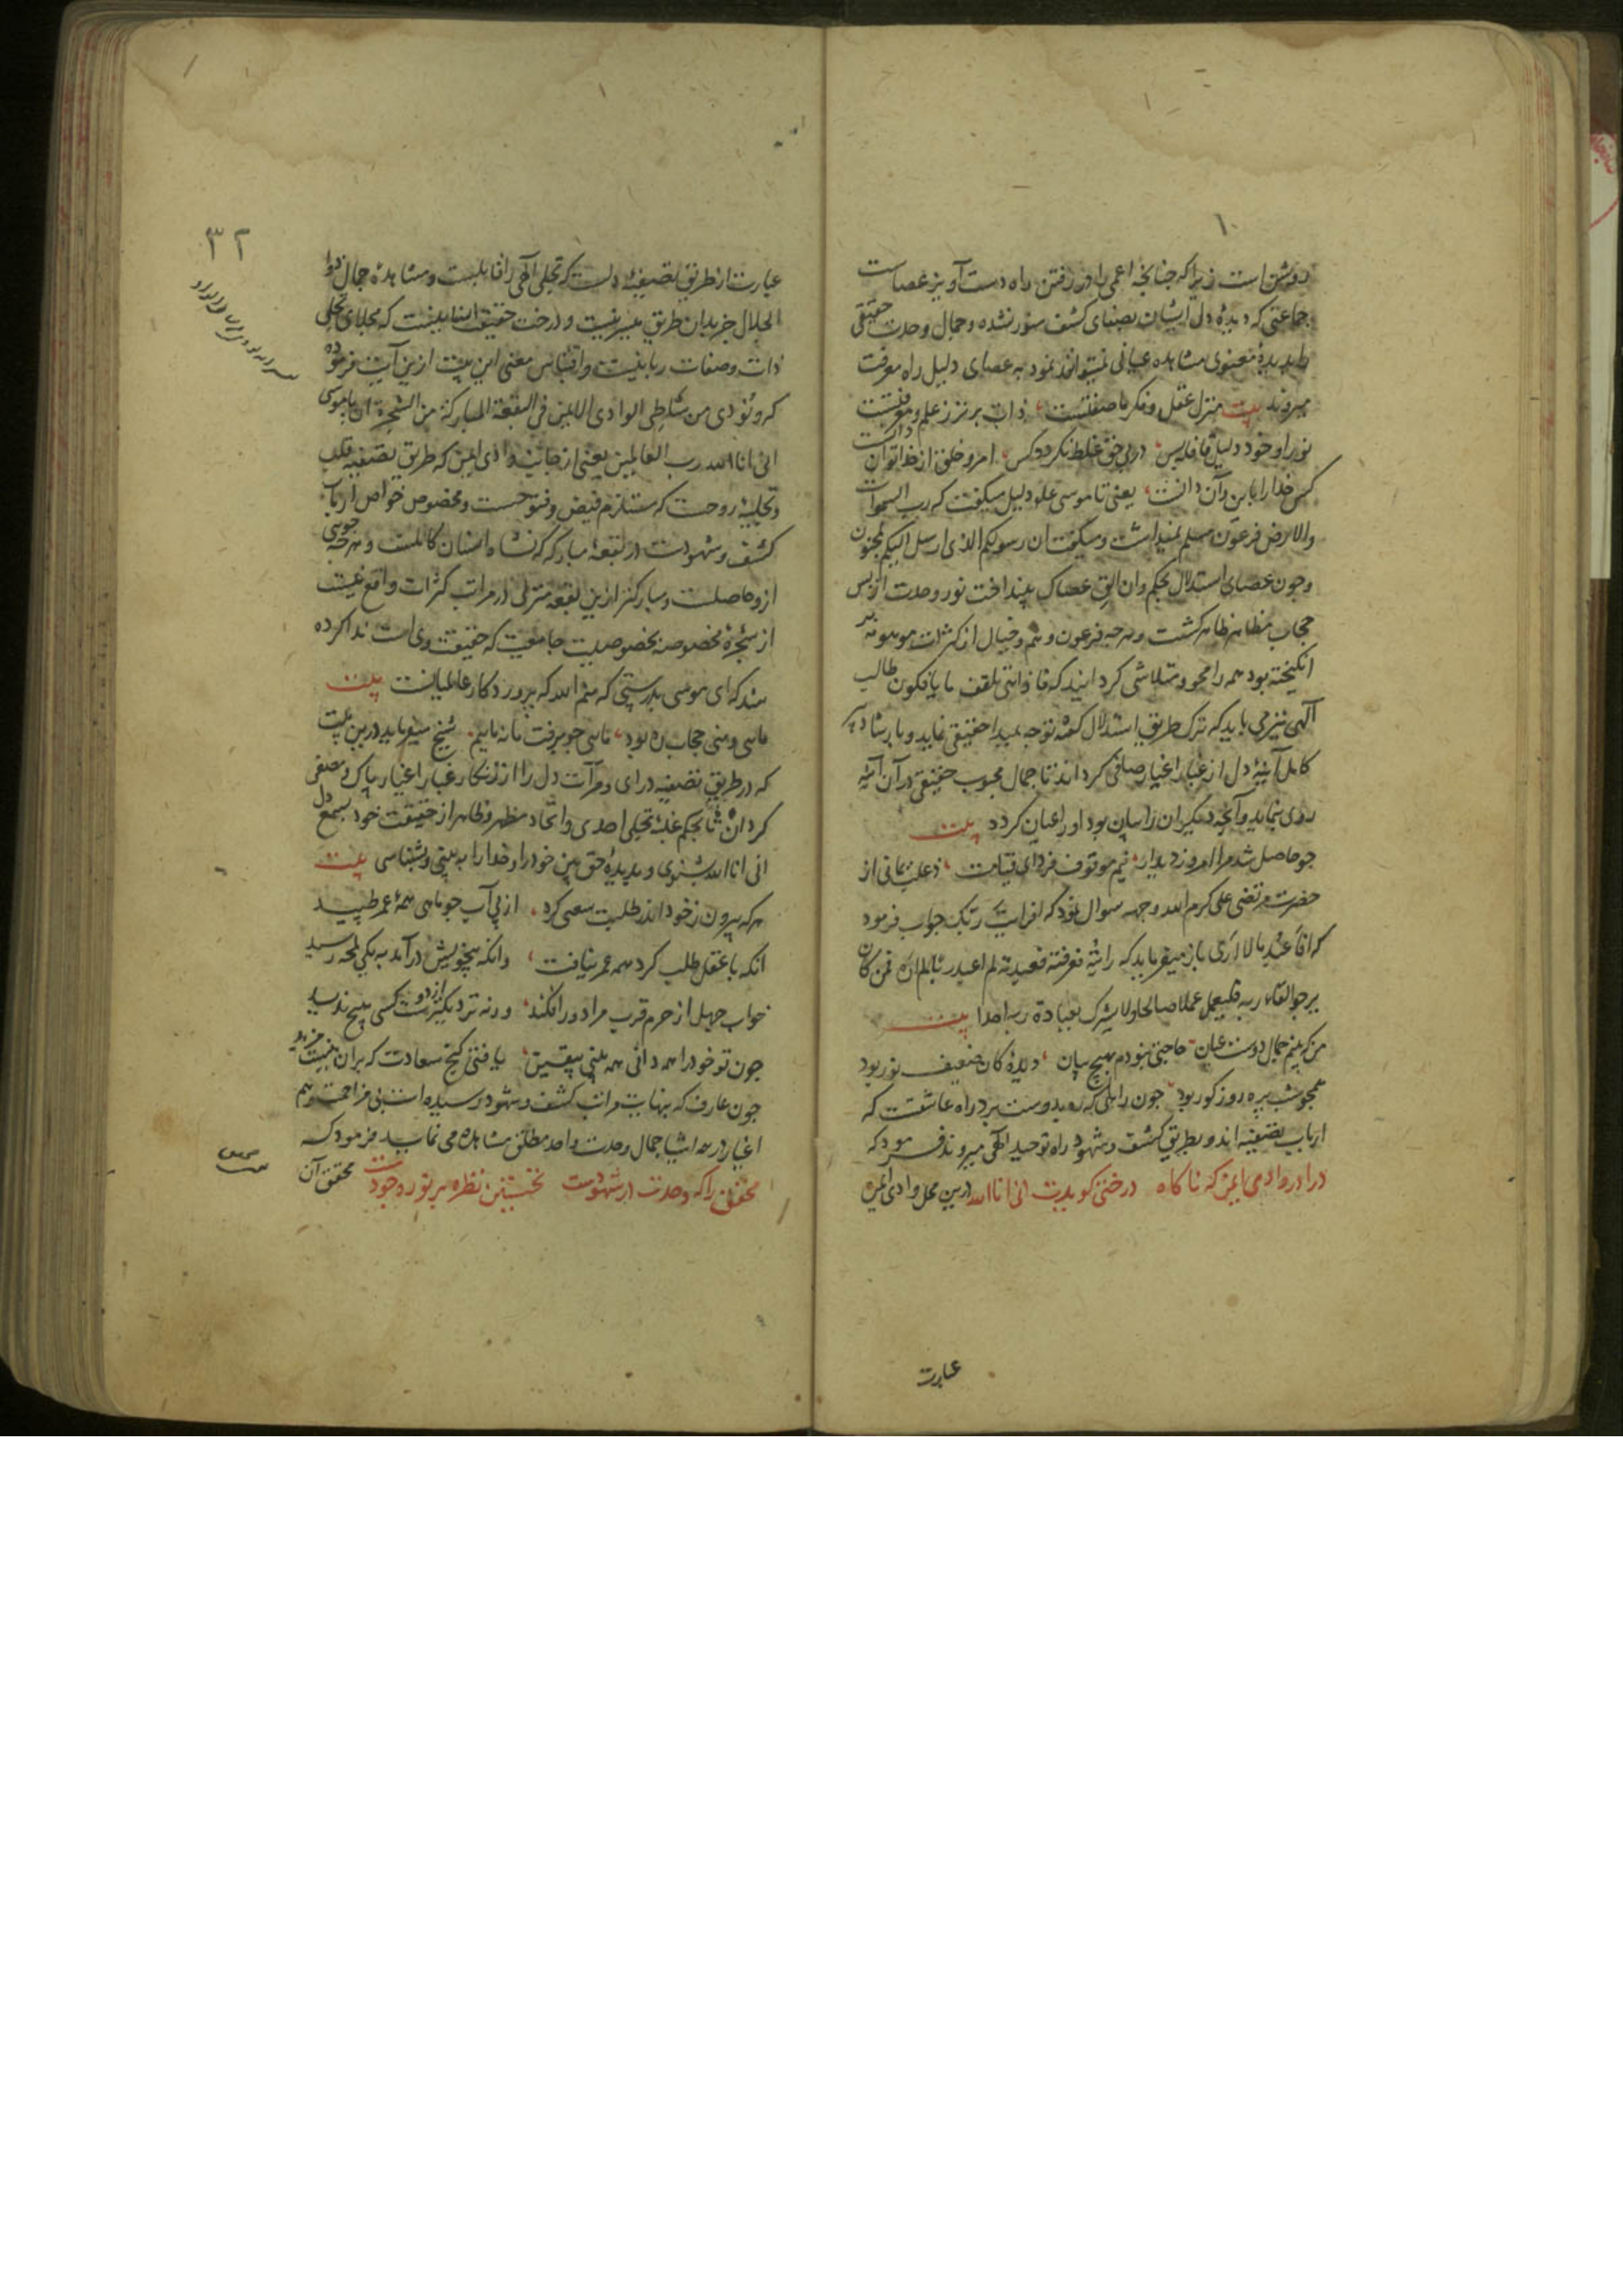 روشن است زیرا که چنانچه اعمی را در رفتن راه دست آویز عصاست
جماعتی که دیدهٔ دل ایشان بصفای کشف منور نشده و جمال وحدت حقیقی
را بدیدهٔ معنوی مشاهده عیانی نمیتوانند نمود به عصای دلیل راه معرفت
میروند بیت منزل عقل و فکر ما صفتست ذات برتر ز علم و معرفتست
نور او خود دلیل قافله بس در پی حق غلط نکرد کس امر و خلق از خدا توان دانست
کس خدا را باین و آن دانست یعنی تا موسی علو دلیل میگفت که رب السموات
والارض فرعون مسلم نمیداشت و میگفت ان رسولکم الذی ارسل الیکم لمجنون
و چون عصای استدلال بحکم وان الق عصاک بینداخت نور وحدت از پس
حجاب مظاهر ظاهر گشت و هرچه فرعون وهم و خیال از کثرات موهومه بر
انگیخته بود همه را محو و متلاشی گردانید که فاذا هی تلقف ما یافکون طالب
الهی نیز می باید که ترک طریق استدلال کرده توجه بمبدا حقیقی نماید و بارشاد پیر
کامل آیینهٔ دل از غبار اغیار صافی گرداند تا جمال محبوب حقیقی در آن آئینه
روی نماید و آنچه دیگران را بیان بود او را عیان گردد بیت
چو حاصل شد مرا امروز دیدار نیم موقوف فردای قیامت ذعلب یمانی از
حضرت مرتضی علی کرم الله وجهه سوال نمود که افرایت ربک جواب فرمود
که افاعبد ما لا اری باز میفرماید که رایته فعرفته فعبدته لم اعبد ربا لم اره فمن کان
یرجوا لقاء ربه فلیعمل عملا صالحا ولا یشرک بعبادة ربه احدا بیت
من که بینم جمال دوست عیان حاجتی نبودم بهیچ بیان دیدهٔ کان ضعیف نور بود
همچو شب پره روز کور بود چون راهی که ره بدوست برد راه عاشقست که
ارباب تصفیه اند و بطریق کشف و شهود راه توحید الهی میروند فرمود که
درا در وادی ایمن که ناگاه درختی گویدت انی انا الله درین محل وادی ایمن
عبارت
۳۲
عبارت از طریق تصفیهٔ دلست که تجلی الهی را قابلست و مشاهده جمال ذوا
الجلال جز بدان طریق میسر نیست و درخت حقیقت انسانیست که مجلای تجلی
ذات و صفات ربانیست و اقتباس معنی این بیت ازین آیت فرموده
که و نودی من شاطئ الوادی الایمن فی البقعة المبارکة من الشجرة ان یا موسی
انی انا الله رب العالمین یعنی از جانب وادی ایمن که طریق تصفیه قلب
و تجلیهٔ روحست که مستلزم فیض و فتوحست و مخصوص خواص ارباب
کشف و شهودست در بقعهٔ مبارکه که نشاه انسان کاملست و هرچه جویی
ازو حاصلست و مبارکتر ازین بقعه منزلی در مراتب کثرات واقع نیست
از شجرهٔ مخصوصه بخصوصیت جامعیت که حقیقت وی است ندا کرده
شد که ای موسی بدرستی که منم الله که پروردکار عالمیانست بیت
مایی و منی حجاب ره بود مایی چو برفت ما نه ماییم شیخ میفرماید درین بیت
که در طریق تصفیه درای و مرآت دل را از زنکار غبار اغیار پاک و مصفی
گردان تا بحکم غلبهٔ تجلی احدی و اتحاد مظهر و ظاهر از حقیقت خود بسمع دل
انی انا الله بشنوی و بدیدهٔ حق بین خود را و خدا را به بینی و بشناسی بیت
هر که بیرون ز خود اندر طلبت سعی کرد از پی آب چو ماهی همهٔ عمر طپید
انکه با عقل طلب کرد همه عمر نیافت وانکه بیخویش درآمد به یکی لمحه رسید
خواب جهل از حرم قرب مرا دور افکند ورنه نزدیکتر از دوست کسی هیچ ندید
چون تو خود را همه دانی همه بینی بیقین یافتی گنج سعادت که بر آن نیست مزید
چون عارف که بنهایت مراتب کشف و شهود رسیده است بی مزاحمت وهم
اغیار در همه اشیا جمال وحدت واحد مطلق مشاهده می نماید فرمود که
محقق را که وحدت در شهودست نخستین نظره بر نور وجودست محقق آن